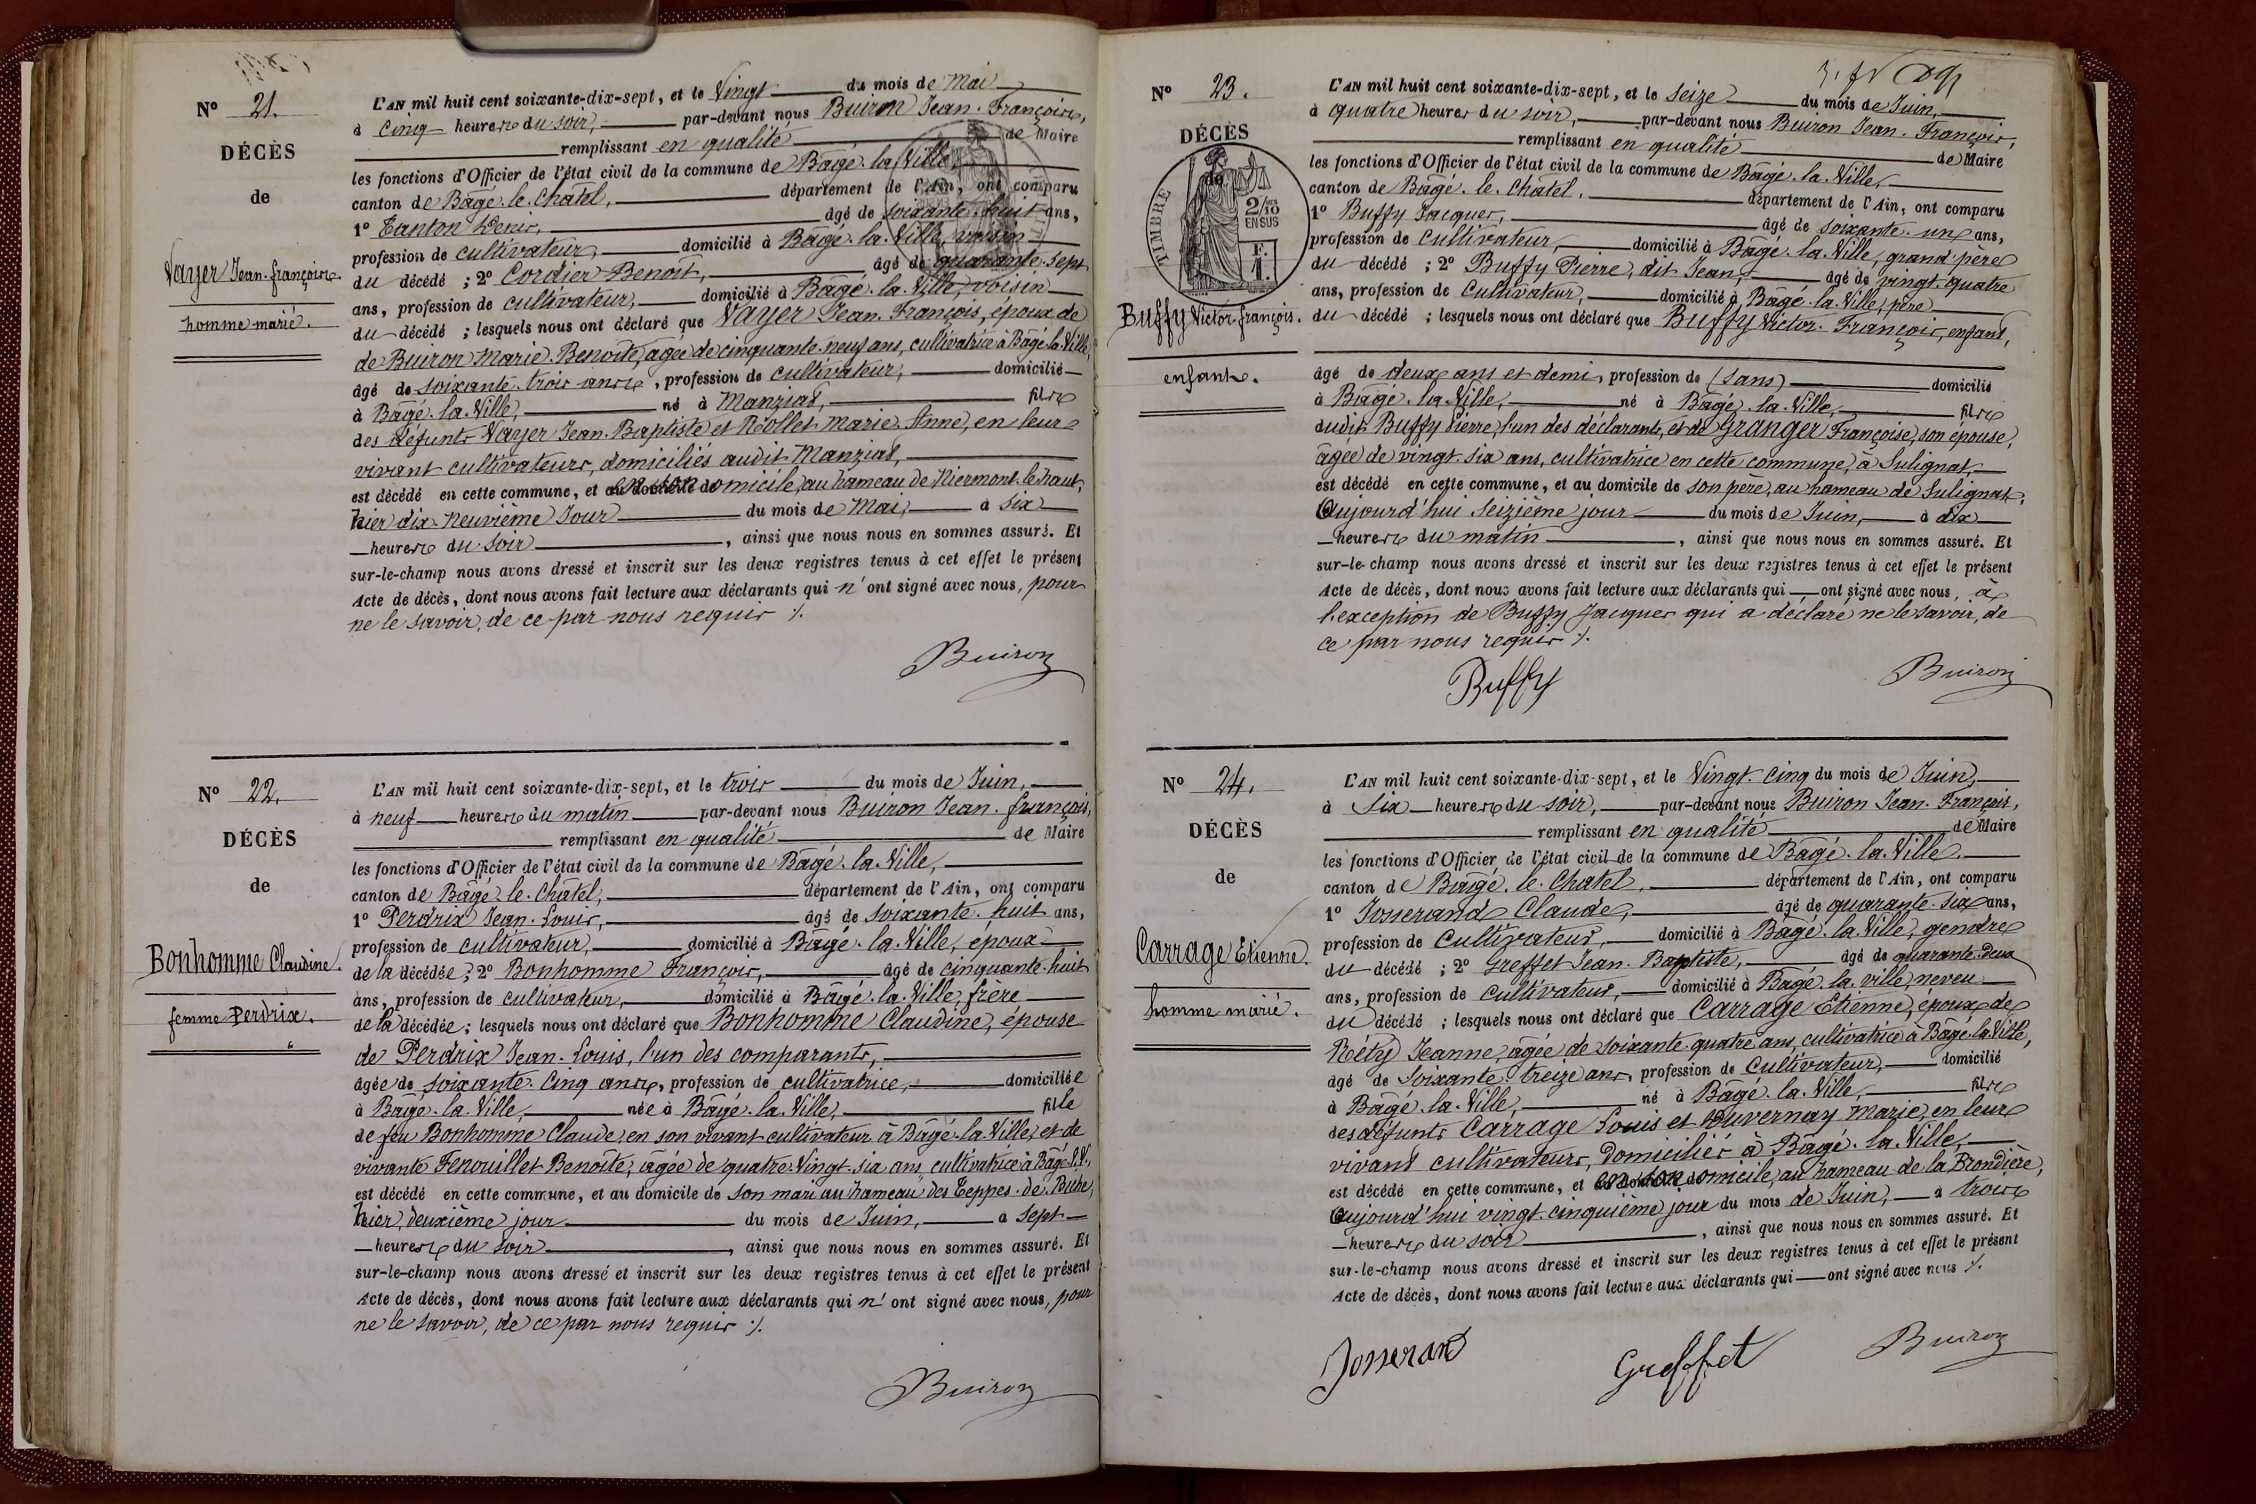 N° 21.
DÉCÈS
de
Vayer Jean-françois.
homme marié.
L'AN mil huit cent soixante-dix-sept, et le Vingt du mois de Mai
à cinq heures du soir, par-devant nous Buiron Jean-François,
remplissant en qualité de Maire
les fonctions d'Officier de l'état civil de la commune de Bâgé-la-Ville,
canton de Bâgé-le-Châtel, département de l'Ain, ont comparu
1° Tanton Denis, âgé de soixante-huit ans,
profession de cultivateur, domicilié à Bâgé-la-Ville, voisin
du décédé ; 2° Cordier Benoît, âgé de quarante-sept
ans, profession de cultivateur, domicilié à Bâgé-la-Ville, voisin
du décédé ; lesquels nous ont déclaré que Vayer Jean-François, époux de
de Buiron Marie-Benoîte, âgée de cinquante-neuf ans, cultivatrice à Bâgé-la-Ville,
âgé de soixante-trois ans, profession de cultivateur, domicilié
à Bâgé-la-Ville, né à Manziat, fils
des défunts Vayer Jean-Baptiste et Nollet Marie-Anne, en leur
vivant cultivateurs, domiciliés audit Manziat,
est décédé en cette commune, et en son domicile, au hameau de Niermont-le-haut,
hier dix-neuvième Jour du mois de Mai, à six
heures du soir, ainsi que nous nous en sommes assuré. Et
sur-le-champ nous avons dressé et inscrit sur les deux registres tenus à cet effet le présent
Acte de décès, dont nous avons fait lecture aux déclarants qui n'ont signé avec nous, pour
ne le savoir, de ce par nous requis ./.
Buiron
N° 22.
DÉCÈS
de
Bonhomme Claudine.
femme Perdrix.
L'AN mil huit cent soixante-dix-sept, et le trois du mois de Juin,
à neuf heures du matin par-devant nous Buiron Jean-françois,
remplissant en qualité de Maire
les fonctions d'Officier de l'état civil de la commune de Bâgé-la-Ville,
canton de Bâgé-le-Châtel, département de l'Ain, ont comparu
1° Perdrix Jean-Louis, âgé de soixante-huit ans,
profession de cultivateur, domicilié à Bâgé-la-Ville, époux
de la décédée ; 2° Bonhomme François, âgé de cinquante-huit
ans, profession de cultivateur, domicilié à Bâgé-la-Ville, frère
de la décédée ; lesquels nous ont déclaré que Bonhomme Claudine, épouse
de Perdrix Jean-Louis, l'un des comparants,
âgée de soixante-cinq ans, profession de cultivatrice, domiciliée
à Bâgé-la-Ville, née à Bâgé-la-Ville, fille
de feu Bonhomme Claude, en son vivant cultivateur à Bâgé-la-Ville, et de
vivante Fenouillet Benoîte, âgée de quatre-Vingt-six ans, cultivatrice à Bâgé-l.V.,
est décédé en cette commune, et au domicile de son mari au hameau des Teppes-de-
hier, deuxième jour du mois de Juin, à sept
heures du soir, ainsi que nous nous en sommes assuré. Et
sur-le-champ nous avons dressé et inscrit sur les deux registres tenus à cet effet le présent
Acte de décès, dont nous avons fait lecture aux déclarants qui n'ont signé avec nous, pour
ne le savoir, de ce par nous requis ./.
Buiron
N° 23.
DÉCÈS
de
TIMBRE
2/10
EN SUS
F.
1.
Buffy Victor-françois.
enfant.
L'AN mil huit cent soixante-dix-sept, et le seize du mois de Juin,
à quatre heures du soir, par-devant nous Buiron Jean-François,
remplissant en qualité de Maire
les fonctions d'Officier de l'état civil de la commune de Bâgé-la-Ville,
canton de Bâgé-le-Châtel, département de l'Ain, ont comparu
1° Buffy Jacques, âgé de soixante-un ans,
profession de cultivateur, domicilié à Bâgé-la-Ville, grand-père
du décédé ; 2° Buffy Pierre, dit Jean, âgé de vingt-quatre
ans, profession de cultivateur, domicilié à Bâgé-la-Ville, père
du décédé ; lesquels nous ont déclaré que Buffy Victor-François, enfant,
âgé de deux ans et demi, profession de (sans) domicilié
à Bâgé-la-Ville, né à Bâgé-la-Ville, fils
dudit Buffy Pierre, l'un des déclarants, et de Granger Françoise, son épouse,
âgée de vingt-six ans, cultivatrice en cette commune, à Sulignat,
est décédé en cette commune, et au domicile de son père, au hameau de Sulignat,
Aujourd'hui seizième jour du mois de Juin, à dix
heures du matin, ainsi que nous nous en sommes assuré. Et
sur-le-champ nous avons dressé et inscrit sur les deux registres tenus à cet effet le présent
Acte de décès, dont nous avons fait lecture aux déclarants qui ont signé avec nous, à
l'exception de Buffy Jacques qui a déclaré ne le savoir, de
ce par nous requis ./.
Buffy
Buiron
N° 24.
DÉCÈS
de
Carrage Etienne.
homme marié.
L'AN mil huit cent soixante-dix-sept, et le Vingt-cinq du mois de Juin,
à six heures du soir, par-devant nous Buiron Jean-François,
remplissant en qualité de Maire
les fonctions d'Officier de l'état civil de la commune de Bâgé-la-Ville,
canton de Bâgé-le-Châtel, département de l'Ain, ont comparu
1° Josserand Claude, âgé de quarante-six ans,
profession de cultivateur, domicilié à Bâgé-la-Ville, gendre
du décédé ; 2° Greffet Jean-Baptiste, âgé de quarante-deux
ans, profession de cultivateur, domicilié à Bâgé-la-ville, neveu
du décédé ; lesquels nous ont déclaré que Carrage Etienne, époux de
Réty Jeanne, âgée de soixante-quatre ans, cultivatrice à Bâgé-la-Ville,
âgé de soixante-treize ans, profession de cultivateur, domicilié
à Bâgé-la-Ville, né à Bâgé-la-Ville, fils
des défunts Carrage Louis et Duvernay Marie, en leur
vivant cultivateurs, domiciliés à Bâgé-la-Ville,
est décédé en cette commune, et en son domicile, au hameau de la Brondière,
Aujourd'hui vingt-cinquième jour du mois de Juin, à trois
heures du soir, ainsi que nous nous en sommes assuré. Et
sur-le-champ nous avons dressé et inscrit sur les deux registres tenus à cet effet le présent
Acte de décès, dont nous avons fait lecture aux déclarants qui ont signé avec nous ./.
Josserand
Greffet
Buiron